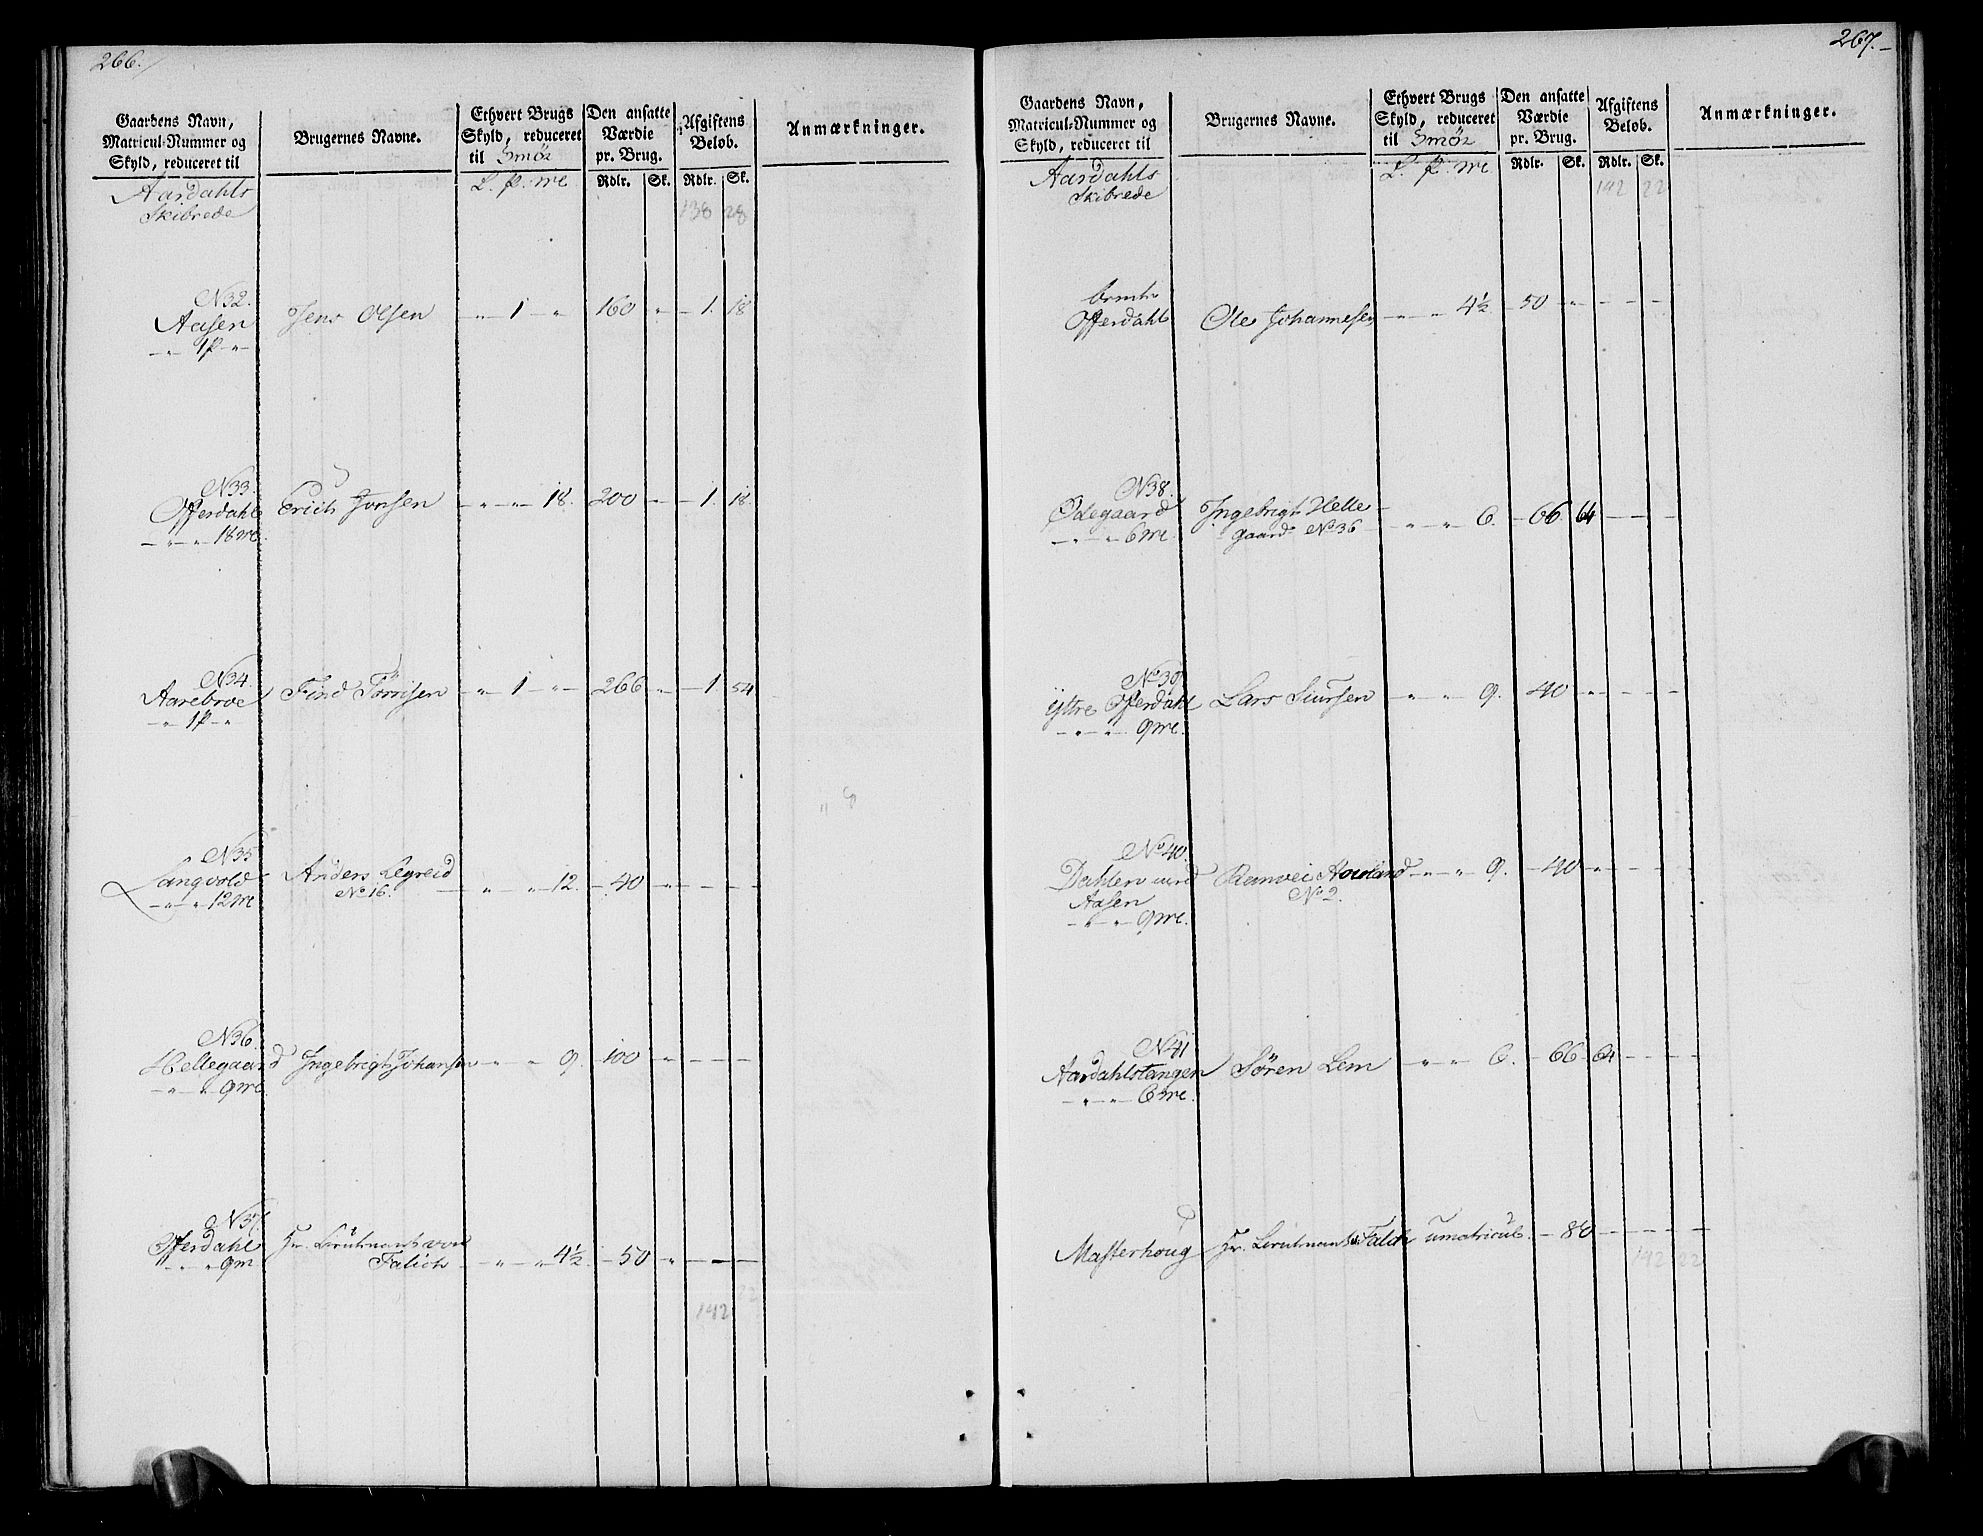 266.
Gaardens Navn,
Matricul-Nummer og
Skyld, reduceret til
Brugernes Navne.
Ethvert Brugs
Skyld, reduceret
til Smör
Den ansatte
Værdie
pr. Brug.
Afgiftens
Beløb.
Anmærkninger.
L. p. mk
Rdlr. Sk. Rdlr. Sk.
Aardahls
Skibrede
138 28
N 32.
Aasen Jens Olsen - " 1 - " 160 " - 1. 18
- " 1 p - "
N 33.
Offerdahl Erich Jonsen - " - " - 18. 200 - - 1. 18
- " - " 18 mk.
N 34.
Aarebroe Find Törrisen - " 1 - " - 266 " - 1. 54
- " 1 p - "
N 35
Langvold Anders Legreid - " " - 12. - 40 " - - -
No 16.
- " - " 12 mk
N 36.
Hellegaard Ingebrigt Johansen - " - " 9. - 100 - " - - -
- " - " 9 mk.
N 37.
Offerdahl Hr. Leutnant von
Falich - " - " 4½ - 50 " - - -
- " - " 9 m
142
267.
Gaardens Navn,
Matricul-Nummer og
Skyld, reduceret til
Brugernes Navne.
Ethvert Brugs
Skyld, reduceret
til Smör
Den ansatte
Værdie
pr. Brug.
Afgiftens
Beløb.
Anmærkninger.
L. p. mk
Rdlr. Sk. Rdlr. Sk.
Aardahls
Skibrede
142 22
Offerdahl Ole Johannesen - " - " 4½ - 50 - " - - -
N 38.
Ödegaard Ingebrigt Helle-
gaard No 36 " - " 6. - 66. 64 - - -
- " - " 6 mk.
No 39
Yttre Offerdahl Lars Siursen - " - " 9. 40 " - - -
- " - " 9 mk.
No 40.
Dahlen med
Aasen
No 2.
- " - " 9. - 40 " - - -
- " - " 9 mk.
N 41
Aardahlstangen Sören Lem - " - " 6. - 66 64 - - -
- " - " 6 mk.
Masterhoug Hr. Leutnant v. Falich umatricul. - 80 - - - -
142 22